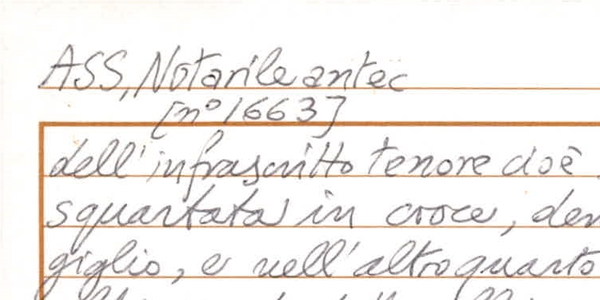 ASS, Notarile antec
[n° 1663]
dell'infrascritto tenore cioè
squartata in croce,
giglio, e nell'altro quarto